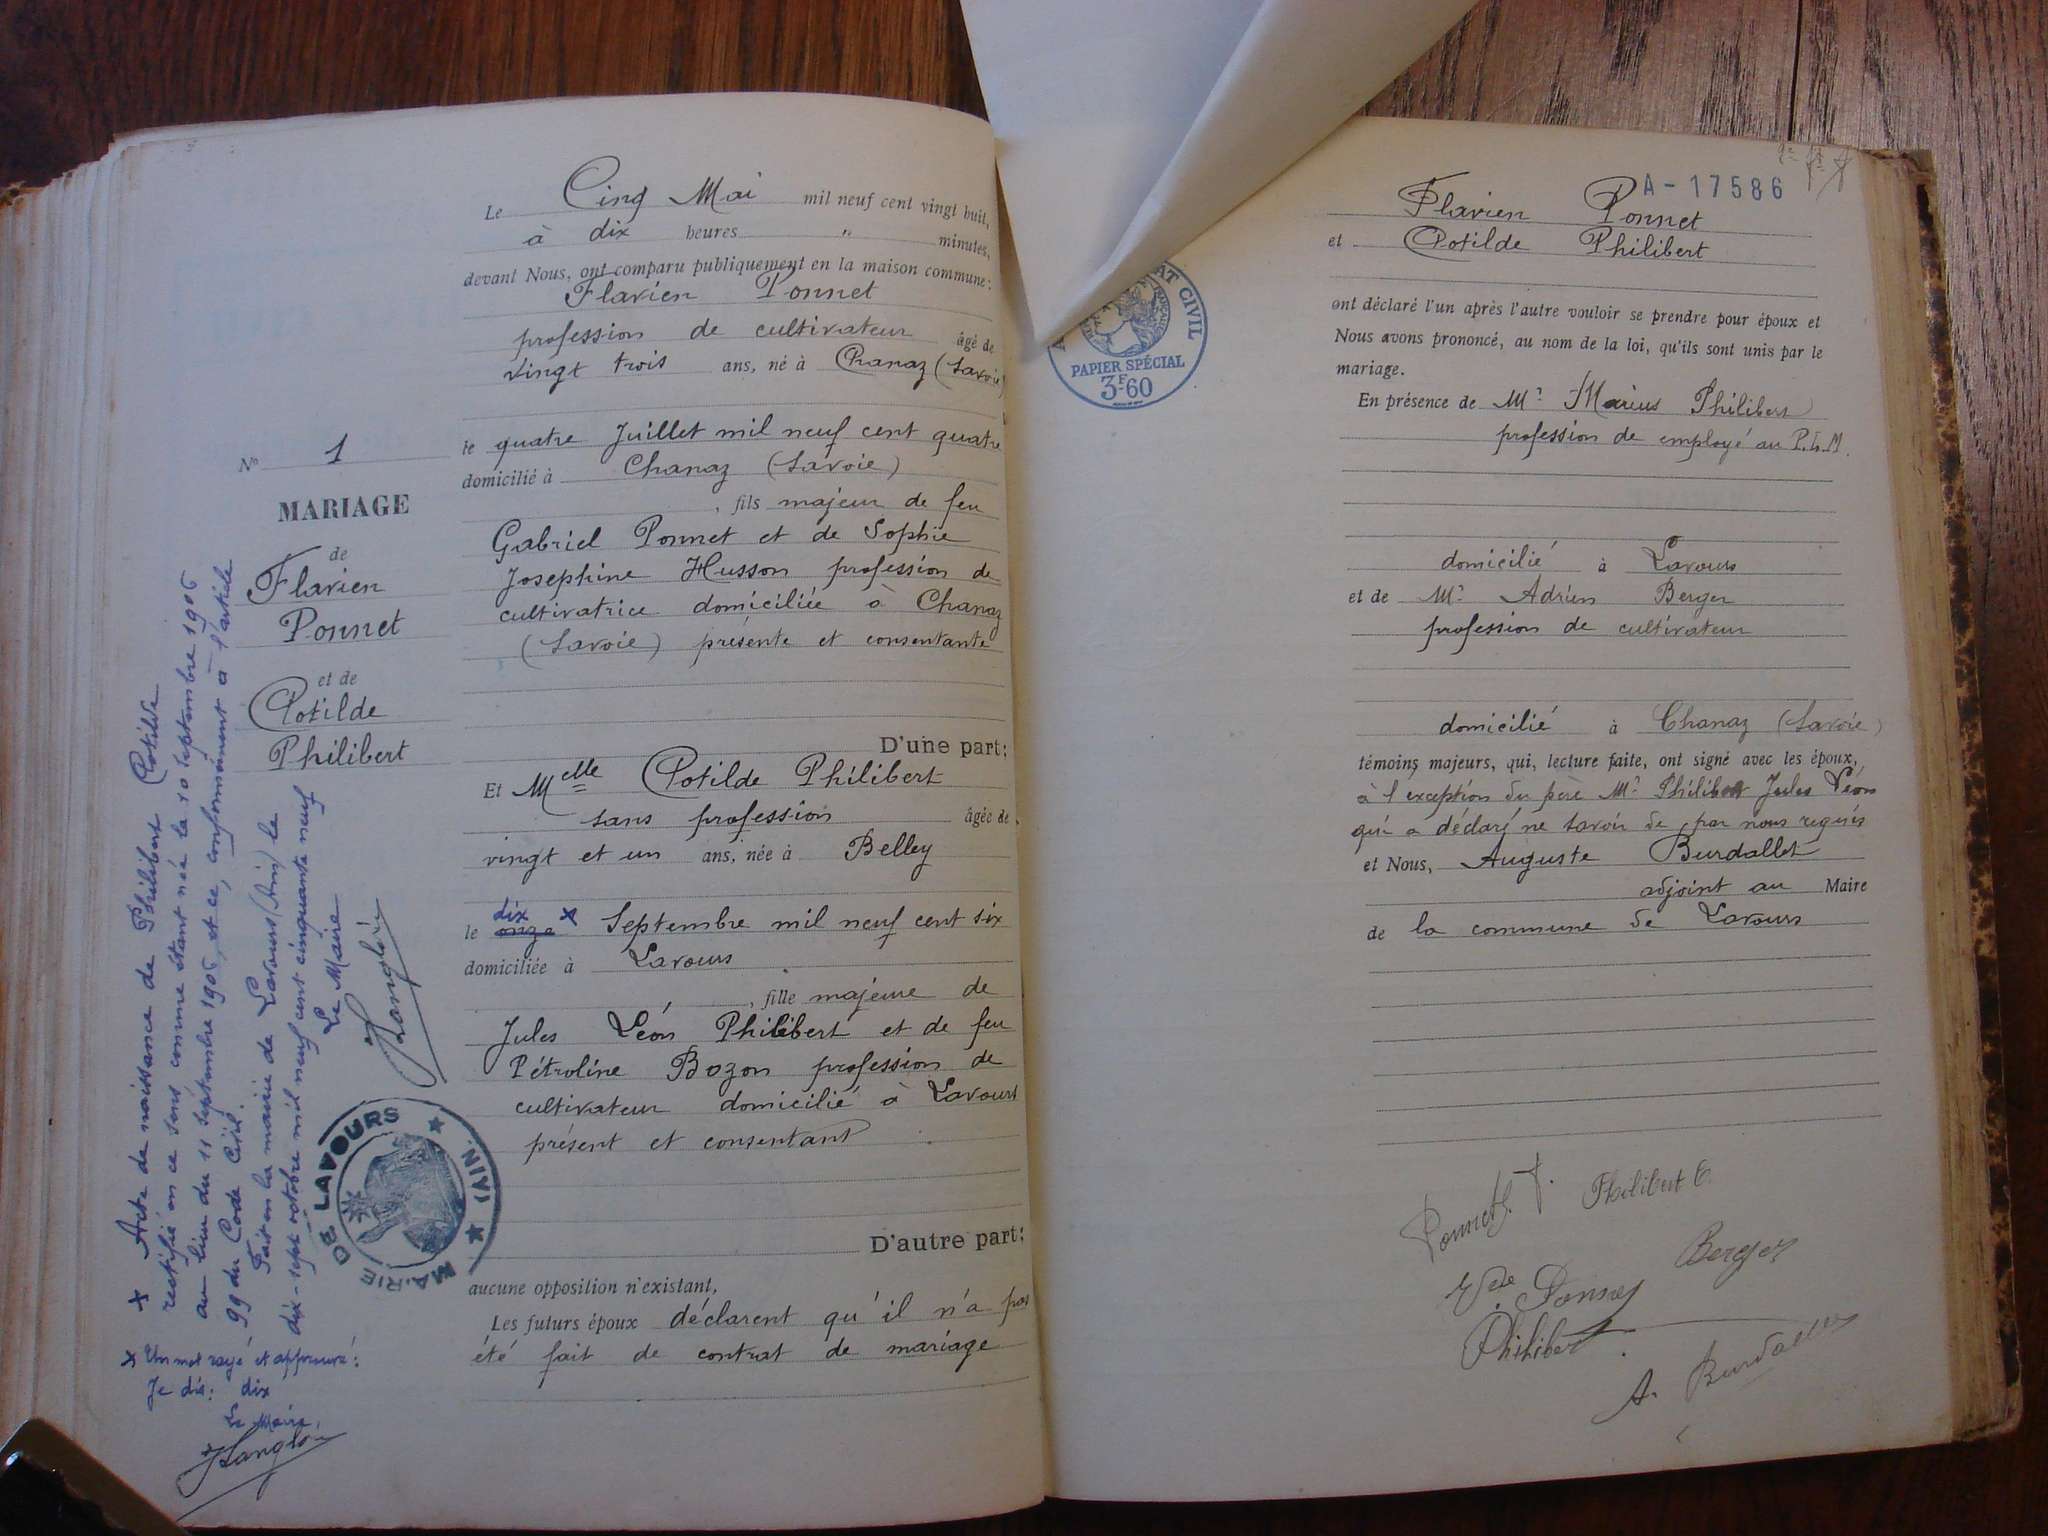 Le Cinq Mai mil neuf cent vingt huit,
à dix heures " minutes,
devant Nous, ont comparu publiquement en la maison commune:
Flavien Ponnet
profession de cultivateur âgé de
vingt trois ans, né à Chanaz (Savoie)
le quatre Juillet mil neuf cent quatre
domicilié à Chanaz (Savoie)
, fils majeur de feu
Gabriel Ponnet et de Sophie
Josephine Husson profession de
cultivatrice domiciliée à Chanaz
(Savoie) présente et consentante
D'une part:
Et Melle Clotilde Philibert
sans profession âgée de
vingt et un ans, née à Belley
dix x
le onze Septembre mil neuf cent six
domiciliée à Lavours
, fille majeure de
Jules Léon Philibert et de feu
Pétroline Bozon profession de
cultivateur domicilié à Lavours
présent et consentant
D'autre part:
aucune opposition n'existant,
Les futurs époux déclarent qu'il n'a pas
été fait de contrat de mariage
No 1
MARIAGE
de
Flavien
Ponnet
et de
Clotilde
Philibert
x Acte de naissance de Philibert Clotilde
rectifié en ce sens comme étant née le 10 septembre 1906
au lieu du 11 septembre 1906, et ce, conformément à l'article
99 du Code Civil.
Fait en la mairie de Lavours (Ain) le
dix-sept octobre mil neuf cent cinquante neuf
Le Maire
MAIRIE DE LAVOURS (AIN)
x Un mot rayé et approuvé:
Je dis: dix
Le Maire,
A-17586
Flavien Ponnet
et Clotilde Philibert
AT CIVIL
PAPIER SPÉCIAL
3F60
ont déclaré l'un après l'autre vouloir se prendre pour époux et
Nous avons prononcé, au nom de la loi, qu'ils sont unis par le
mariage.
En présence de Mr Marius Philibert
profession de employé au P.L.M.
domicilié à Lavours
et de Mr Adrien Berger
profession de cultivateur
domicilié à Chanaz (Savoie)
témoins majeurs, qui, lecture faite, ont signé avec les époux,
à l'exception du père Mr Philibert Jules Léon
qui a déclaré ne savoir de par nous requis
et Nous, Auguste Burdallet
adjoint au Maire
de la commune de Lavours
Ponnet F.
Philibert C.
Berger
Vve Ponnet
Philibert
A. Burdallet